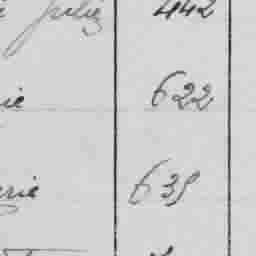 Julie 442
ie 622
erie 635